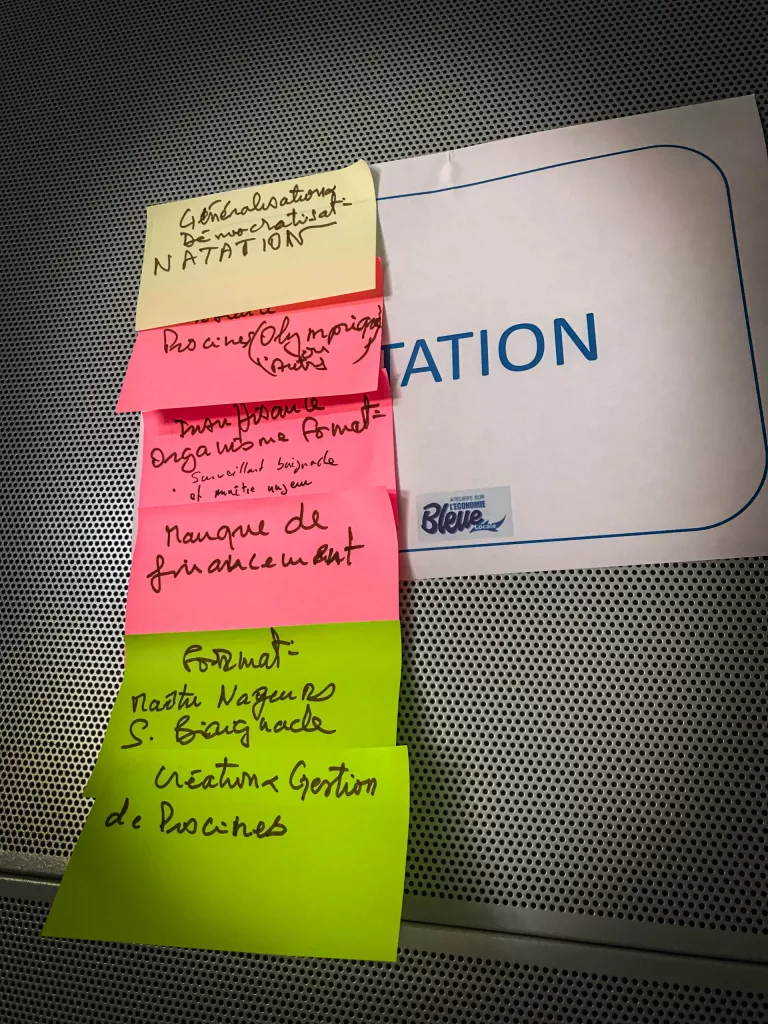 Généralisation &
Démocratisat-
NATATION
Piscines (Olympique
ou
Autres)
Insuffisance
Organisme Format-
Surveillant baignade
et maître nageur
Manque de
financement
Format-
Maître Nageurs
S. Baignade
Création & Gestion
de Piscines
TATION
ATELIERS SUR
L'ÉCONOMIE
Bleue
Locale